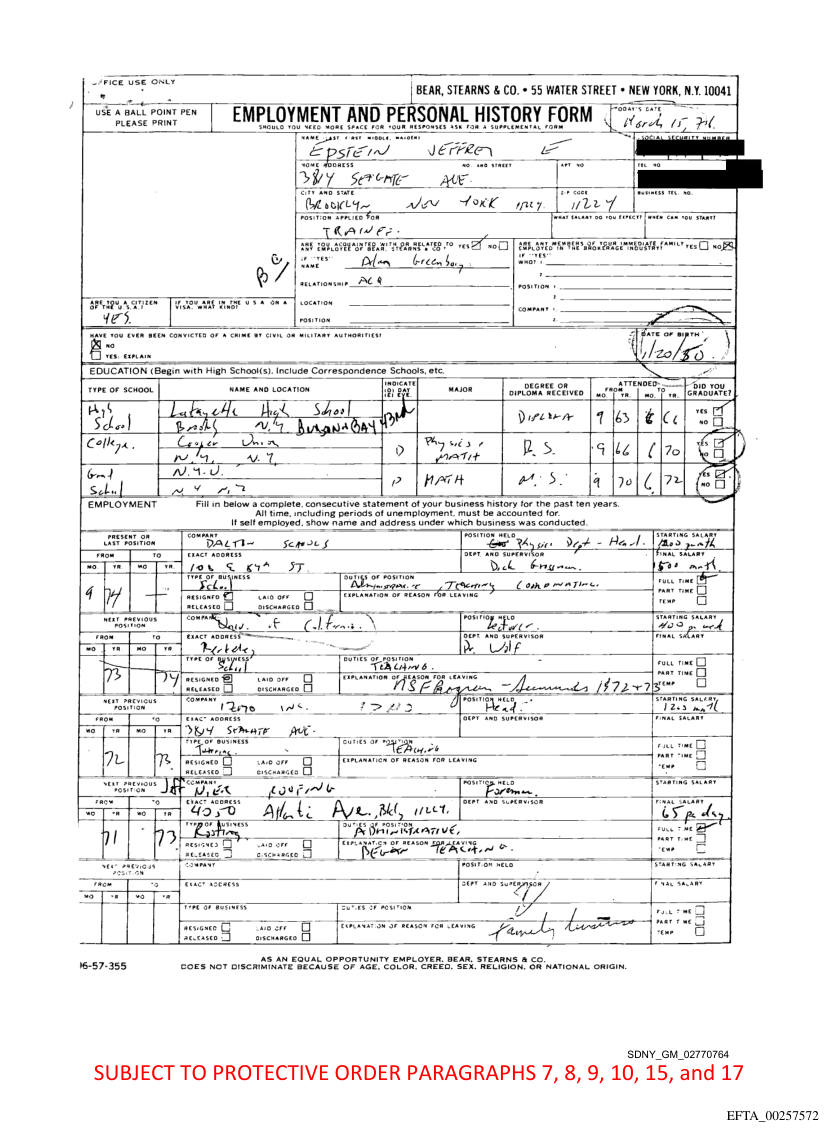 OFFICE USE ONLY
BEAR, STEARNS & CO. • 55 WATER STREET • NEW YORK, N.Y. 10041
USE A BALL POINT PEN
PLEASE PRINT
EMPLOYMENT AND PERSONAL HISTORY FORM
SHOULD YOU NEED MORE SPACE FOR YOUR RESPONSES ASK FOR A SUPPLEMENTAL FORM
TODAY'S DATE
March 15, 76
NAME (LAST FIRST MIDDLE, MAIDEN)
SOCIAL SECURITY NUMBER
EPSTEIN JEFFREY E
HOME ADDRESS NO. AND STREET APT NO TEL NO.
3814 SEAGATE AVE.
CITY AND STATE ZIP CODE BUSINESS TEL. NO.
BROOKLYN NEW YORK 11224. 11224
POSITION APPLIED FOR WHAT SALARY DO YOU EXPECT? WHEN CAN YOU START?
TRAINEE.
ARE YOU ACQUAINTED WITH OR RELATED TO ANY EMPLOYEE OF BEAR, STEARNS & CO? YES NO
ARE ANY MEMBERS OF YOUR IMMEDIATE FAMILY EMPLOYED IN THE BROKERAGE INDUSTRY? YES NO
IF "YES" NAME Greenberg
IF "YES" WHO? 1.
2.
RELATIONSHIP ACQ
POSITION 1.
2.
ARE YOU A CITIZEN OF THE U.S.A.? YES.
IF YOU ARE IN THE U S A ON A VISA, WHAT KIND?
LOCATION
COMPANY 1.
POSITION 2.
HAVE YOU EVER BEEN CONVICTED OF A CRIME BY CIVIL OR MILITARY AUTHORITIES?
NO
YES. EXPLAIN
DATE OF BIRTH
1/20/50
EDUCATION (Begin with High School(s). Include Correspondence Schools, etc.
TYPE OF SCHOOL NAME AND LOCATION INDICATE (D) DAY (E) EVE. MAJOR DEGREE OR DIPLOMA RECEIVED ATTENDED FROM MO. YR. TO MO. YR. DID YOU GRADUATE?
High School Lafayette High School DIPLOMA 9 63 6 66 YES NO
N.Y. BENSON & BAY 43rd
College. Cooper Union D Physics, MATH B.S. 9 66 6 70 YES NO
N.Y. N.Y.
Grad School N.Y.U. D MATH M.S. 9 70 6 72 YES NO
N Y N.Y
EMPLOYMENT Fill in below a complete, consecutive statement of your business history for the past ten years.
All time, including periods of unemployment, must be accounted for.
If self employed, show name and address under which business was conducted.
PRESENT OR LAST POSITION COMPANY POSITION HELD STARTING SALARY
DALTON SCHOOLS Physics Dept - Head.
FROM TO EXACT ADDRESS DEPT. AND SUPERVISOR FINAL SALARY
108 E 89th ST. 1500 month
MO. YR. MO. YR. TYPE OF BUSINESS DUTIES OF POSITION FULL TIME
9 74 School Administrative, TEACHING PART TIME
RESIGNED LAID OFF EXPLANATION OF REASON FOR LEAVING TEMP
RELEASED DISCHARGED
NEXT PREVIOUS POSITION COMPANY POSITION HELD STARTING SALARY
Univ. of California.
FROM TO EXACT ADDRESS DEPT AND SUPERVISOR FINAL SALARY
Berkeley Dr. Wolf
MO YR MO YR TYPE OF BUSINESS DUTIES OF POSITION FULL TIME
73 74 School TEACHING. PART TIME
RESIGNED LAID OFF EXPLANATION OF REASON FOR LEAVING TEMP
NSF Program - Summers 1972 + 73
RELEASED DISCHARGED
NEXT PREVIOUS POSITION COMPANY POSITION HELD STARTING SALARY
INC. Head. month
FROM TO EXACT ADDRESS DEPT AND SUPERVISOR FINAL SALARY
3814 SEAGATE AVE.
MO YR MO YR TYPE OF BUSINESS DUTIES OF POSITION FULL TIME
72 73 Tutoring. TEACHING PART TIME
RESIGNED LAID OFF EXPLANATION OF REASON FOR LEAVING TEMP
RELEASED DISCHARGED
NEXT PREVIOUS POSITION COMPANY POSITION HELD STARTING SALARY
ROOFING Foreman.
FROM TO EXACT ADDRESS DEPT AND SUPERVISOR FINAL SALARY
Atlantic Ave., Bkly 11224. 65 per day.
MO YR MO YR TYPE OF BUSINESS DUTIES OF POSITION FULL TIME
71 73 ADMINISTRATIVE, PART TIME
RESIGNED LAID OFF EXPLANATION OF REASON FOR LEAVING TEMP
BEGAN TEACHING.
RELEASED DISCHARGED
NEXT PREVIOUS POSITION COMPANY POSITION HELD STARTING SALARY
FROM TO EXACT ADDRESS DEPT AND SUPERVISOR FINAL SALARY
MO YR MO YR TYPE OF BUSINESS DUTIES OF POSITION FULL TIME
PART TIME
RESIGNED LAID OFF EXPLANATION OF REASON FOR LEAVING TEMP
family business
RELEASED DISCHARGED
AS AN EQUAL OPPORTUNITY EMPLOYER, BEAR, STEARNS & CO.
06-57-355 DOES NOT DISCRIMINATE BECAUSE OF AGE, COLOR, CREED, SEX, RELIGION, OR NATIONAL ORIGIN.
SDNY_GM_02770764
SUBJECT TO PROTECTIVE ORDER PARAGRAPHS 7, 8, 9, 10, 15, and 17
EFTA_00257572